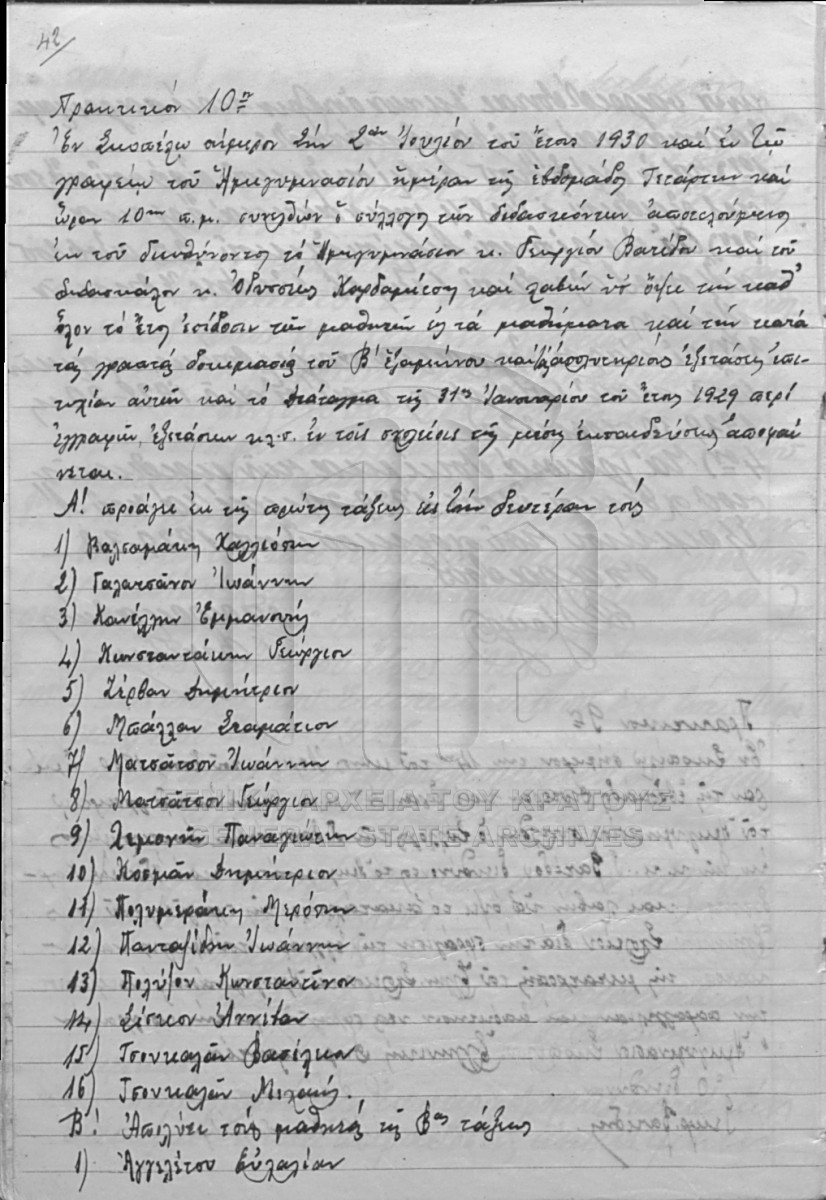 42/
Πρακτικόν 10ον
Ἐν Σκοπέλῳ σήμερον τήν 2αν Ἰουλίου τοῦ ἔτους 1930 καί ἐν τῷ
γραφείῳ τοῦ Ἡμιγυμνασίου ἡμέραν τῆς ἑβδομάδος Τετάρτην καί
ὥραν 10ην π.μ. συνελθών ὁ σύλλογος τῶν διδασκόντων ἀποτελούμενος
ἐκ τοῦ διευθύνοντος τό Ἡμιγυμνάσιον κ. Γεωργίου Βατίδου καί τοῦ
διδασκάλου κ. Ὀδυσσέως Καρδαμίτση καί λαβών ὑπ' ὄψει τήν καθ'
ὅλον τό ἔτος ἐπίδοσιν τῶν μαθητῶν εἰς τά μαθήματα καί τήν κατά
τάς γραπτάς δοκιμασίας τοῦ Β' ἑξαμήνου καί ἀπολυτηρίους ἐξετάσεις ἐπι-
τυχίαν αὐτῶν καί τό Διάταγμα τῆς 31ης Ἰανουαρίου τοῦ ἔτους 1929 περί
ἐγγραφῶν, ἐξετάσεων κ.λ.π. ἐν τοῖς σχολείοις τῆς μέσης ἐκπαιδεύσεως ἀποφαί
νεται.
Α! προάγει ἐκ τῆς πρώτης τάξεως εἰς τήν δευτέραν τούς
1) Βαλσαμάκη Καλλιόπην
2) Γαλατσάνον Ἰωάννην
3) Κανέλλην Ἐμμανουήλ
4) Κωνσταντάκην Γεώργιον
5) Ζέρβαν Δημήτριον
6) Μπάλλαν Σταμάτιον
7) Ματσάτσον Ἰωάννην
8) Ματσάτσον Γεώργιον
9) Λεμονῆν Παναγιώτην
10) Κοσμᾶν Δημήτριον
11) Πολυμεράκη Μερόπην
12) Πανταζίδην Ἰωάννην
13) Πολύζον Κωνσταντῖνον
14) Σίσκου Ἀννέταν
15) Τσουκαλᾶν Βασίλειον
16) Τσουκαλᾶν Μιχαήλ.
Β! Ἀπολύει τούς μαθητάς τῆς Βας τάξεως
1) Ἀγγελέτου Εὐλαλίαν
ΓΕΝΙΚΑ ΑΡΧΕΙΑ ΤΟΥ ΚΡΑΤΟΥΣ
GENERAL STATE ARCHIVES